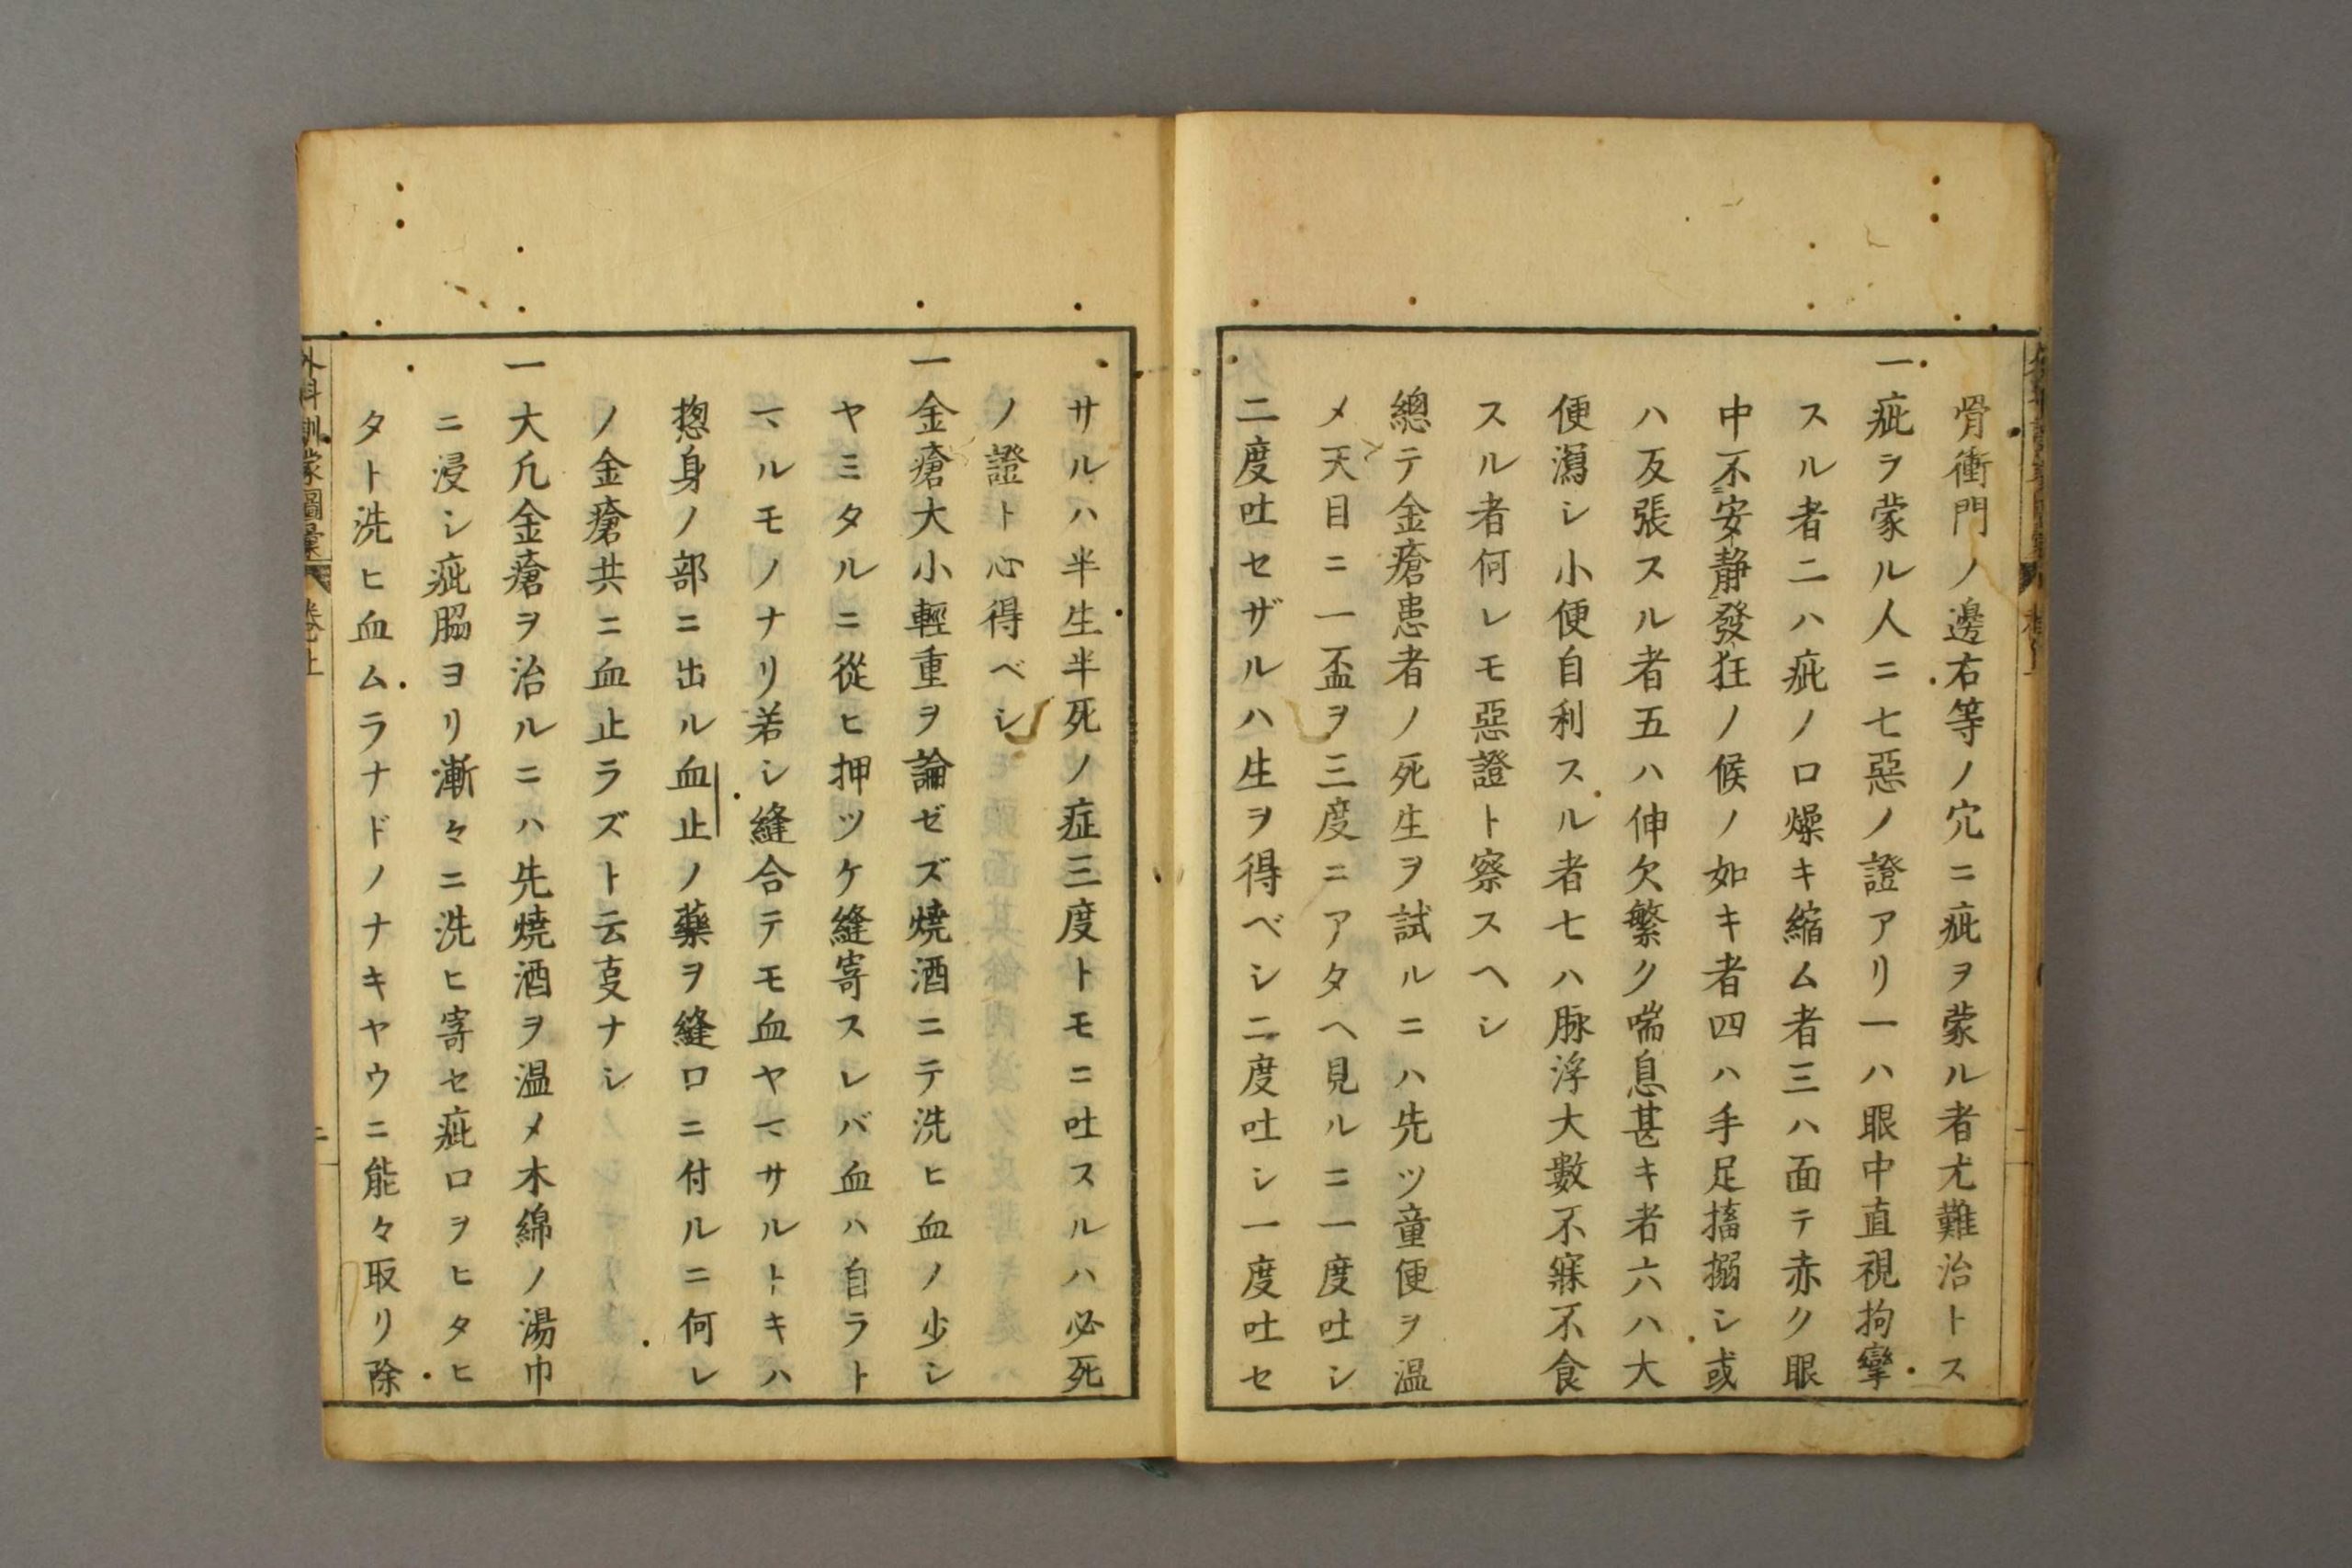 骨衝門ノ邊右等ノ穴ニ疵ヲ蒙ル者尤難治トス
一疵ヲ蒙ル人ニ七惡ノ證アリ一ハ眼中直視拘攣
スル者二ハ疵ノ口燥キ縮ム者三ハ面テ赤ク眼
中不安靜發狂ノ候ノ如キ者四ハ手足搐搦シ或
ハ反張スル者五ハ伸欠繁ク喘息甚キ者六ハ大
便瀉シ小便自利スル者七ハ脉浮大數不寐不食
スル者何レモ惡證ト察スヘシ
總テ金瘡患者ノ死生ヲ試ルニハ先ツ童便ヲ温
メ天目ニ一盃ヲ三度ニアタヘ見ルニ一度吐シ
二度吐セザルハ生ヲ得ベシ二度吐シ一度吐セ
サルハ半生半死ノ症三度トモニ吐スルハ必死
ノ證ト心得ベシ
一金瘡大小輕重ヲ論ゼズ燒酒ニテ洗ヒ血ノ少シ
ヤミタルニ從ヒ押ツケ縫寄スレバ血ハ自ラト
マルモノナリ若シ縫合テモ血ヤマサルトキハ
揔身ノ部ニ出ル血止ノ藥ヲ縫口ニ付ルニ何レ
ノ金瘡共ニ血止ラズト云叓ナシ
一大凡金瘡ヲ治ルニハ先燒酒ヲ温メ木綿ノ湯巾
ニ浸シ疵脇ヨリ漸々ニ洗ヒ寄セ疵口ヲヒタヒ
タト洗ヒ血ムラナドノナキヤウニ能々取リ除
外科訓蒙圖彙 卷上 二